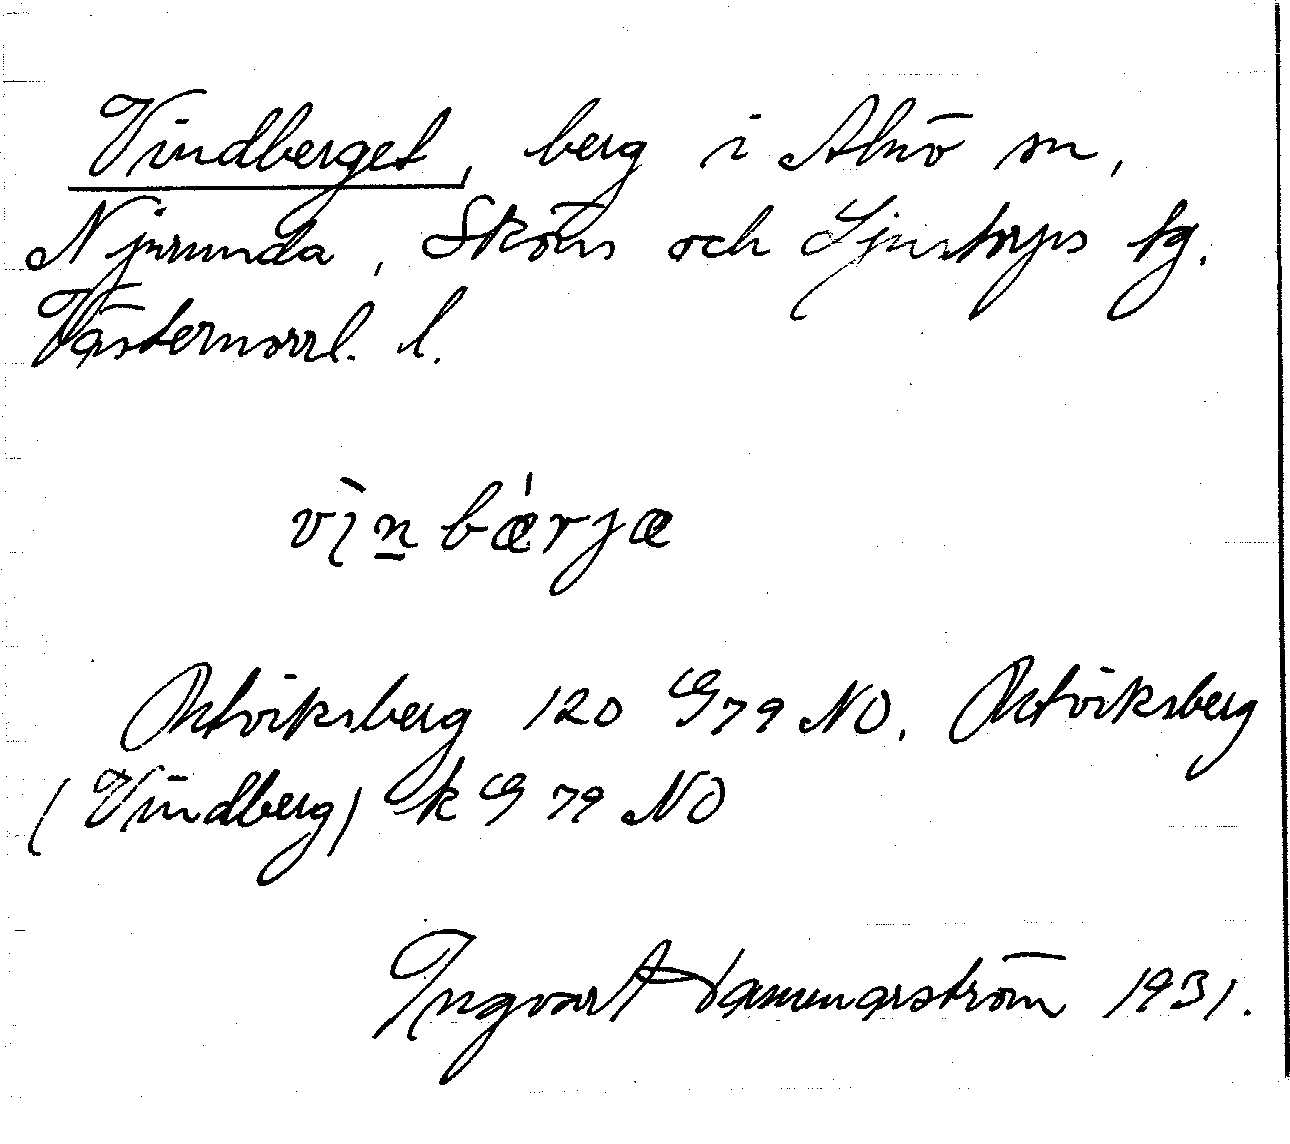 Vindberget, berg i Alnö sn,
Njurunda, Sköns och Ljustorps tg.
Västernorrl. l.
vìn bǽrjæ
Ratviksberg 120 G 79 NO. Ratviksberg
(Vindberg) k G 79 NO
Ingvar Hammarström 1931.